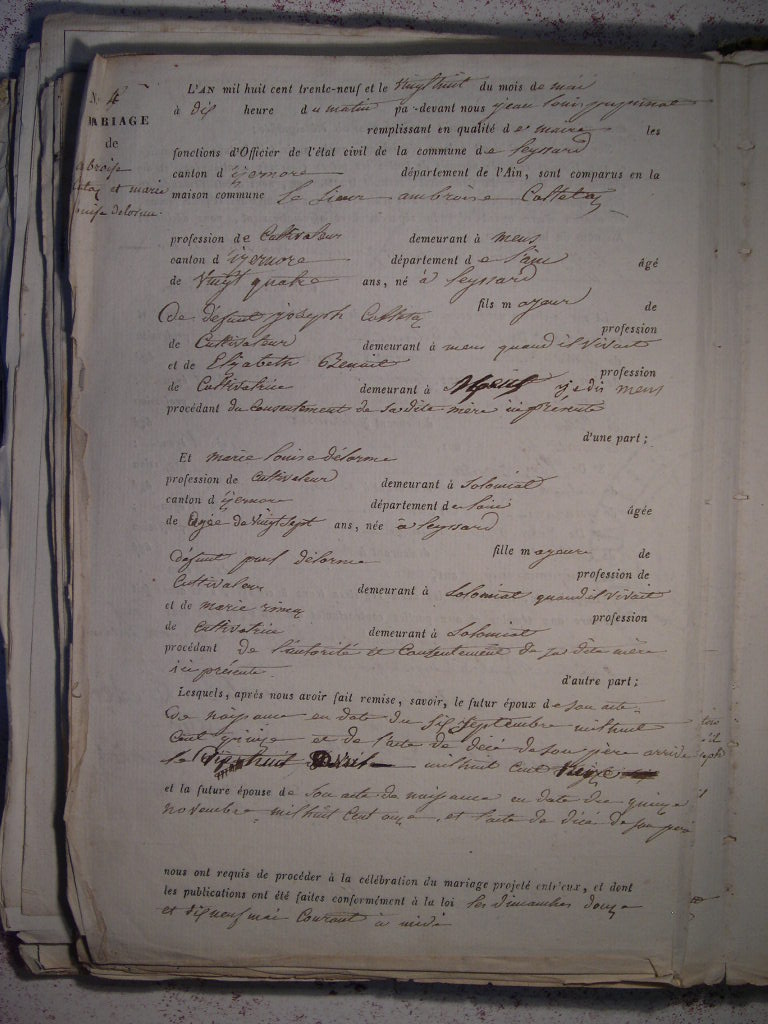 N. 4
MARIAGE
de
abroise
et marie
louise delorme.
L'AN mil huit cent trente-neuf et le vingt huit du mois de mai
à dix heure du matin pa-devant nous jean louis
remplissant en qualité de maire les
fonctions d'Officier de l'état civil de la commune de leyssard
canton d'izernore département de l'Ain, sont comparus en la
maison commune le sieur ambroise Cottetaz
profession de Cultivateur demeurant à mens
canton d'izernore département de l'ain âgé
de vingt quatre ans, né à leyssard
fils majeur de
de défunt joseph Cottetaz profession
de Cultivateur demeurant à mens quand il vivait
et de Elizabeth Benoit profession
de Cultivatrice demeurant à je dis mens
procédant du consentement de sa dite mère ici présente
d'une part;
Et marie louise délorme
profession de cultivateur demeurant à Solomiat
canton d'izernore département de l'ain âgée
de agée de vingt sept ans, née à leyssard
fille majeure de
défunt delorme profession de
Cultivateur demeurant à Solomiat quand il vivait
et de marie profession
de cultivatrice demeurant à Solomiat
procédant de l'autorité et Consentement de sa dite mère
ici présente. d'autre part;
Lesquels, après nous avoir fait remise, savoir, le futur époux de son acte
de naissance en date du six septembre mil huit
cent quinze et de l'acte de décé de son père arrivé
le dix huit avril mil huit cent
et la future épouse de son acte de naissance en date du quinze
novembre mil huit cent onze, et l'acte de décé de son père
nous ont requis de procéder à la célébration du mariage projeté entr'eux, et dont
les publications ont été faites conformément à la loi les dimanches douze
et dix neuf mai courant à midi